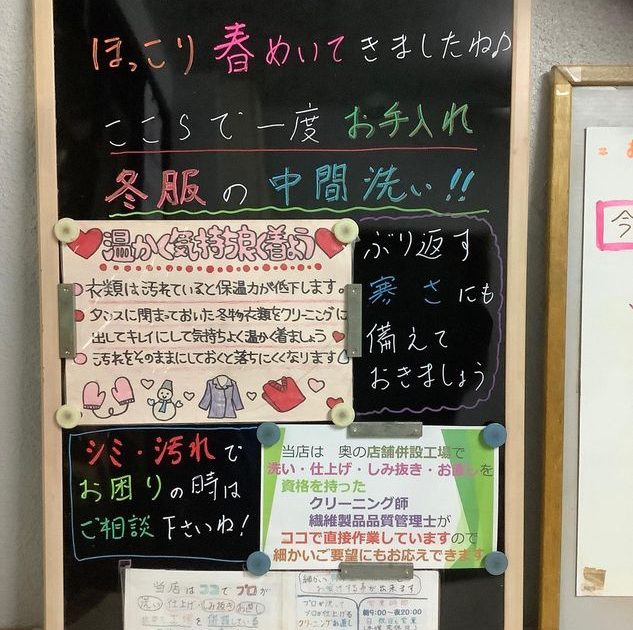 ほっこり 春めいてきましたね♪
ここらで一度 お手入れ
冬服の中間洗い!!
温かく気持ち良く着よう
衣類は汚れていると保温力が低下します。
タンスに閉まっておいた冬物衣類をクリーニングに
出してキレイにして気持ちよく温かく着ましょう
汚れをそのままにしておくと落ちにくくなります
ぶり返す
寒さにも
備えて
おきましょう
シミ・汚れで
お困りの時は
ご相談下さいね!
当店は 奥の店舗併設工場で
洗い・仕上げ・しみ抜き・お直しを
資格を持った
クリーニング師
繊維製品品質管理士が
ココで直接作業していますので
細かいご要望にもお応えできます
当店はココでプロが
洗い 仕上げ・しみ抜き お直し
プロが洗って
プロが仕上げる
クリーニングお直し
営業時間
朝9:00〜夜20:00
今